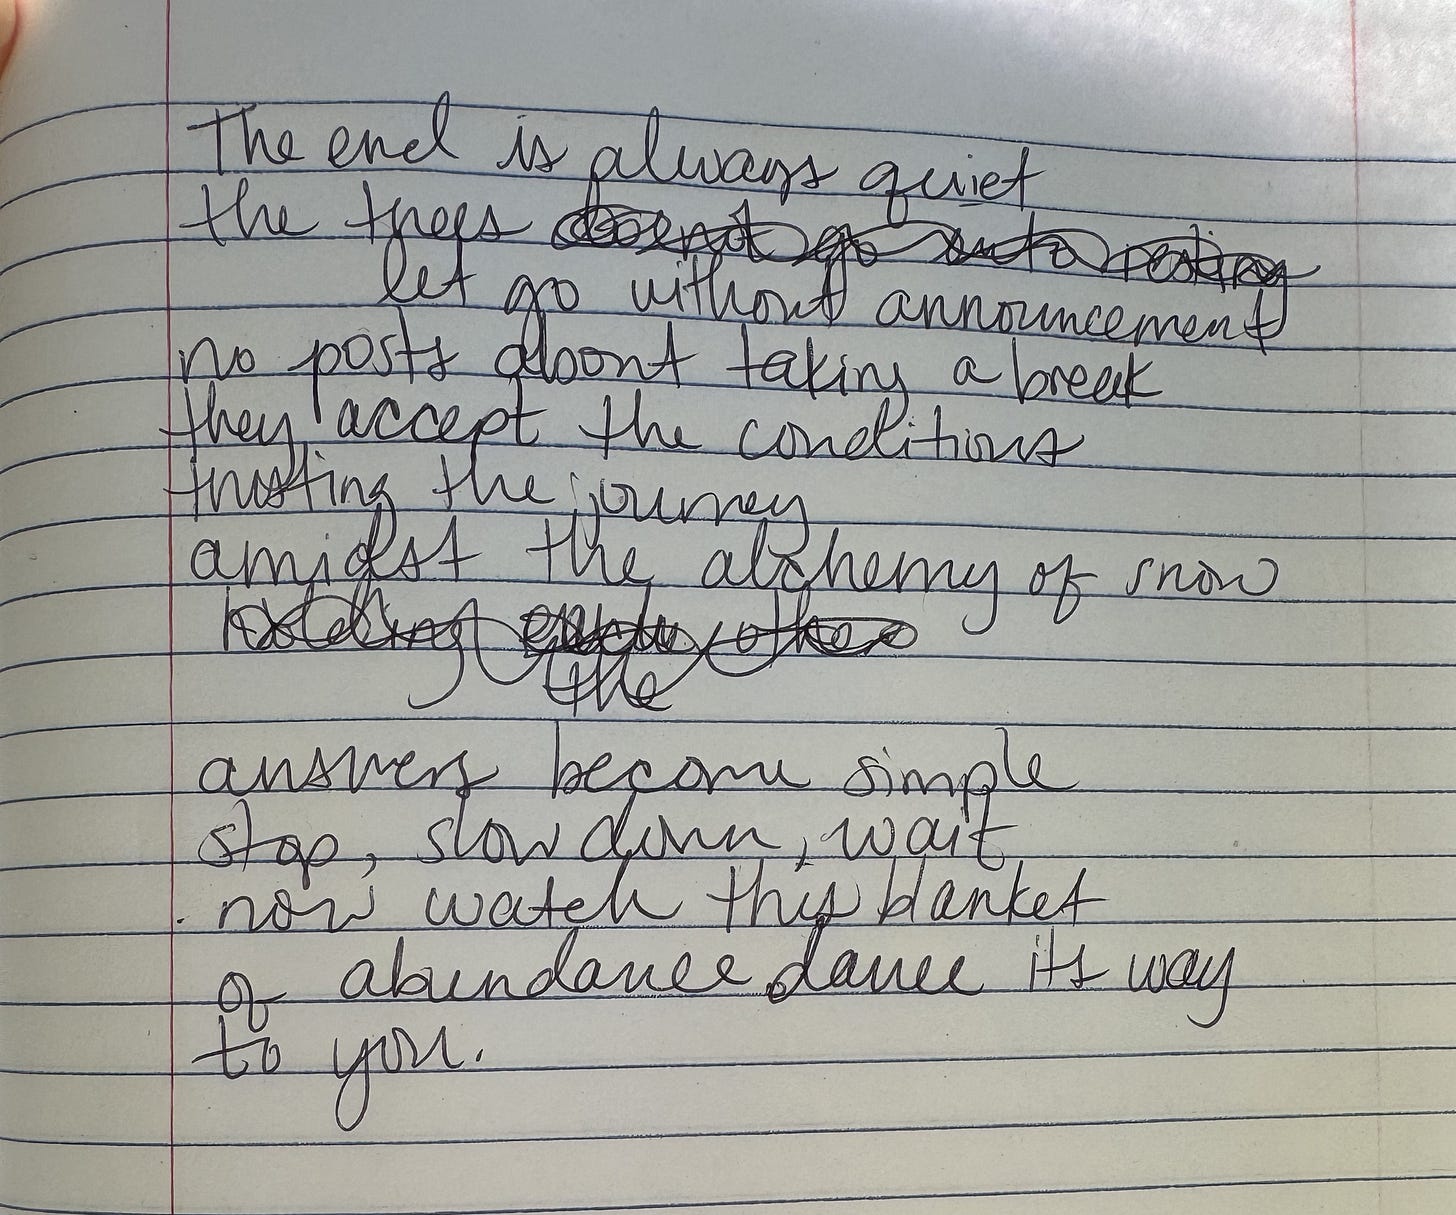 The end is always quiet
the trees
let go without announcement
no posts about taking a break
they accept the conditions
trusting the journey
amidst the alchemy of snow
the
answers become simple
stop, slow down, wait
now watch this blanket
of abundance dance its way
to you.